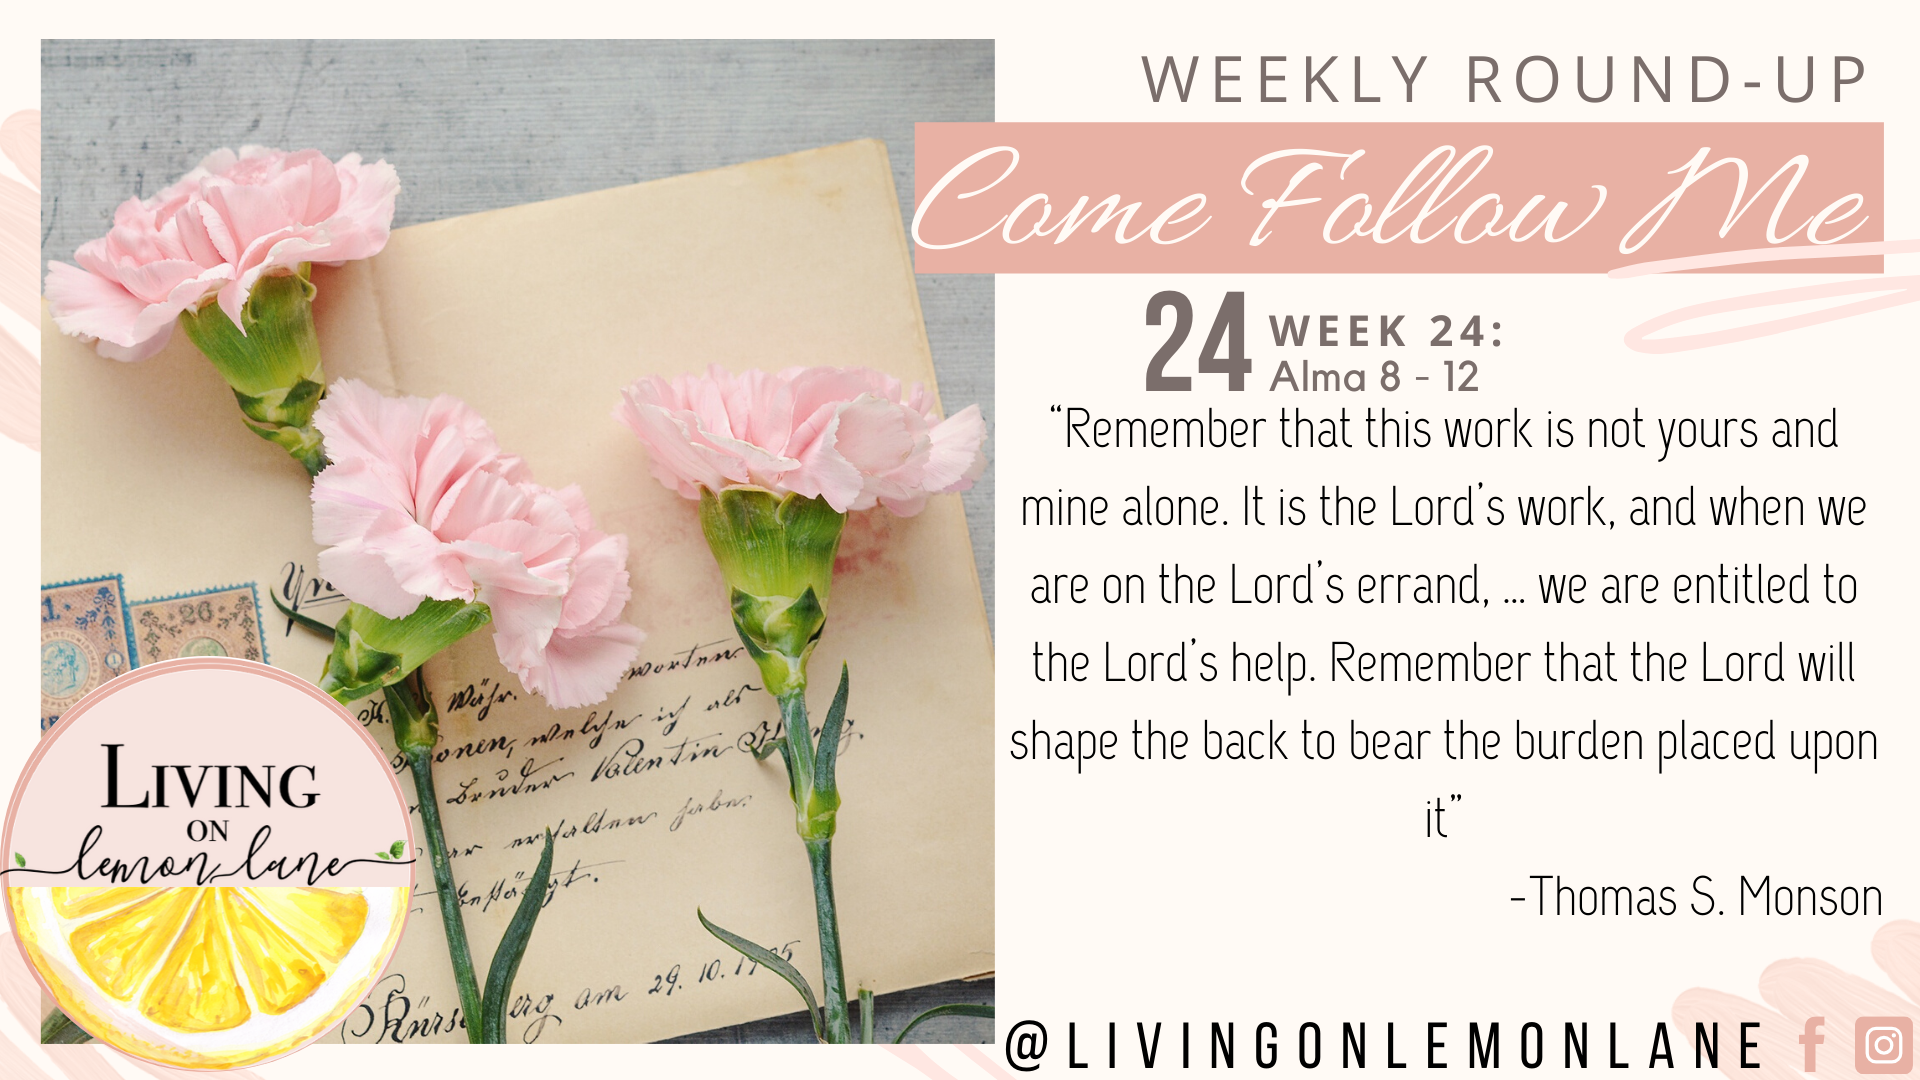 WEEKLY ROUND-UP
Come Follow Me
24
WEEK 24:
Alma 8 - 12
“Remember that this work is not yours and
mine alone. It is the Lord’s work, and when we
are on the Lord’s errand, ... we are entitled to
the Lord’s help. Remember that the Lord will
shape the back to bear the burden placed upon
it”
-Thomas S. Monson
@LIVINGONLEMONLANE
LIVING
ON
lemon lane
26
worten
Währ.
welche ich als
Bruder Valentin
erhalten habe.
am 29. 10.